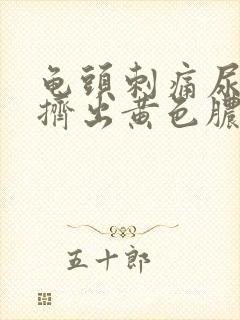 龟头刺痛尿
擠出黄色膿
五十郎